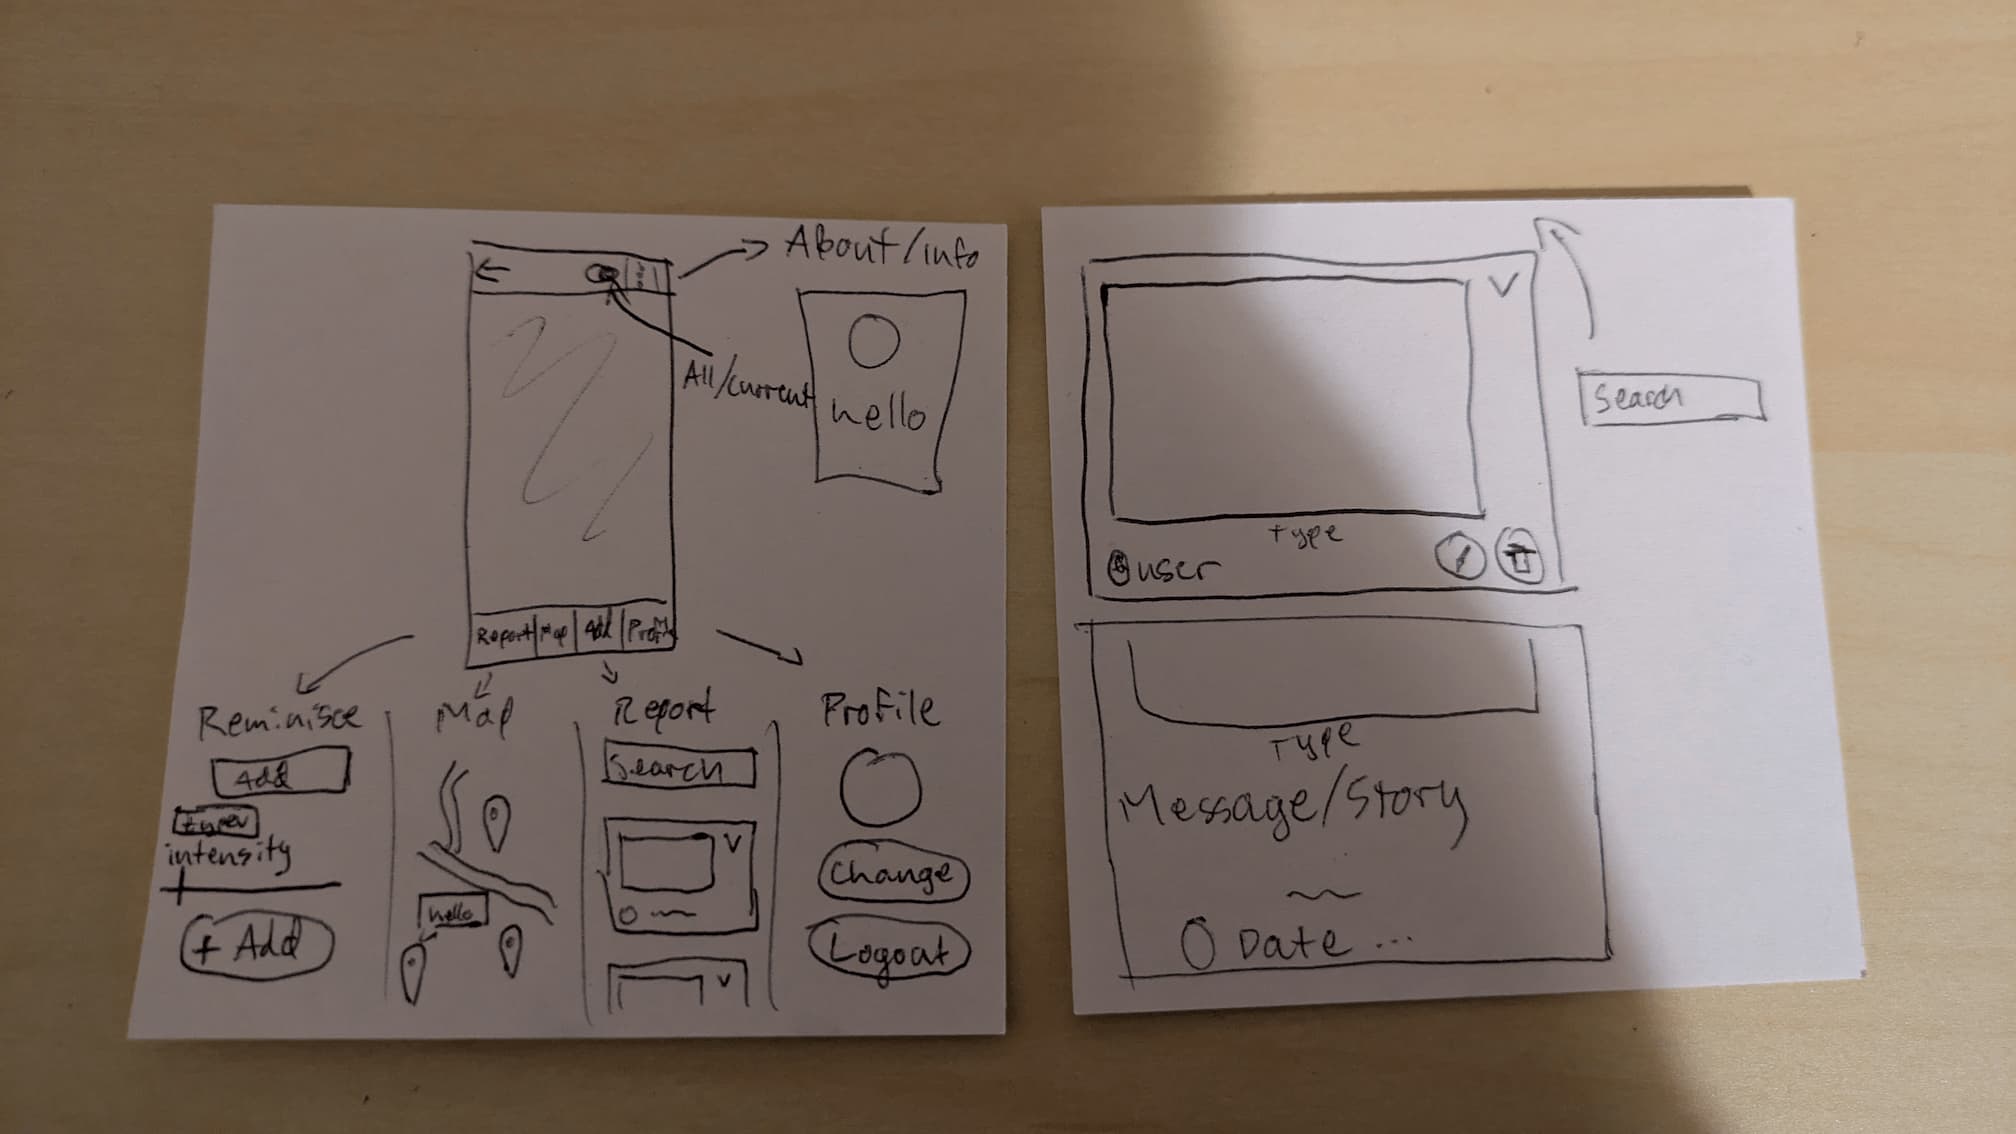 About/info
All/current
hello
Report Map Add Profile
Reminisce
Add
intensity
+ Add
Map
hello
Report
Search
Profile
Change
Logout
Search
Type
user
Type
Message/Story
Date ...